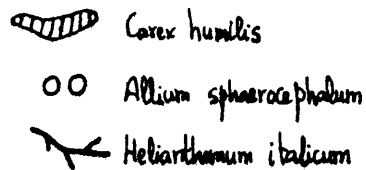 Carex humilis
Allium sphaerocephalum
Helianthemum italicum